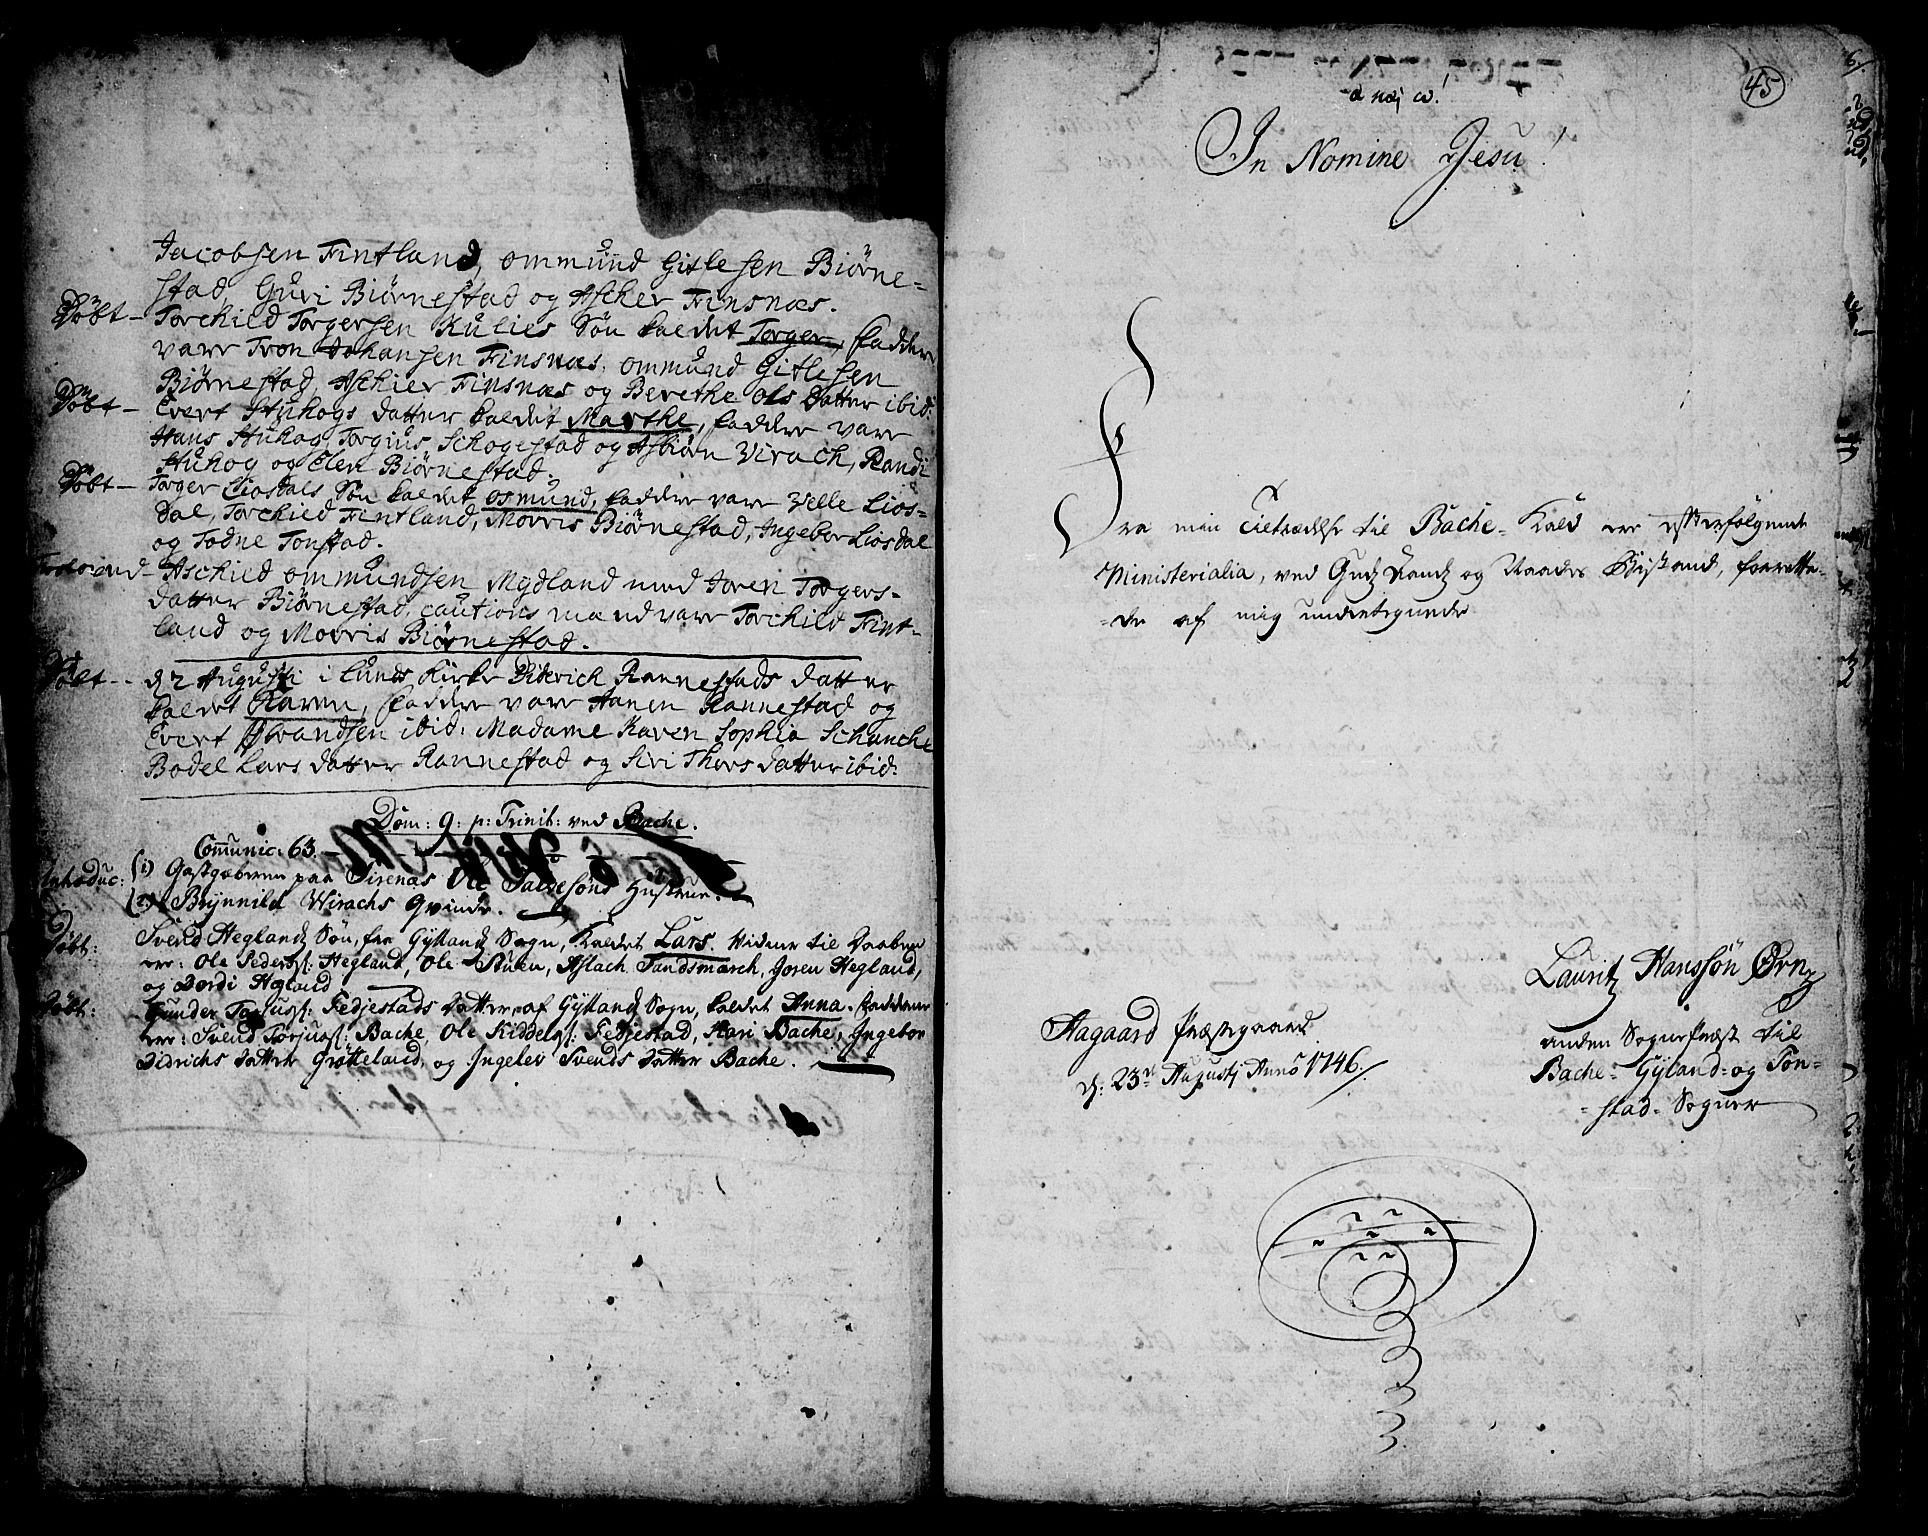 Jacobsen Fintland, ommund Gitlesen Biørne-
stad, Guri Biørnestad og Ascher Finsnæs.
Døbt - Torchild Torgersen Kulies Søn kaldet Torger, faddere
vare Tron Johansen Finsnæs, ommund Gitlesen
Biørnestad, Aschier Finsnæs og Berethe ols datter ibid:
Døbt - Evert Stuhogs datter kaldet Marthe, faddere vare
Hans Stuhog, Torgius Schogestad og Asbiørn Virach, Randi
Stuhog og Elen Biørnestad.
Døbt - Torger Liosdals Søn kaldet osmund, faddere vare Velle Lios-
dal, Torchild Fintland, Morris Biørnestad, Ingebor Liosdal
og Todne Tonstad.
Aschild ommundsen Mydland med Joren Torgers-
datter Biørnestad, cautions mænd vare Torchild Fint-
land og Morris Biørnestad.
Døbt - d 2 Augusti i Lunds Kirke Diderich Rannestads datter
kaldet Karen, faddere vare Hanen Rannestad og
Evert ibid: Madame Karen Sophia Schanche
Bodel Lars datter Rannestad og Siri Thors datter ibid:
Dom: 9: p: Trinit: ved Bache.
Communic: 63.
Introduc: (1) Gastgæberen paa Sirenæs Ole Salvesøns Hustrue.
(2) Brynnild Wirachs Qvinde.
Døbt: Svend Heglands Søn, fra Gyllands Sogn, kaldet Lars. Vidner til Daaben
ere: Ole Peders: Hegland, Ole Stuen, Aslach Sandsmarch, Joren Hegland,
og Hegland
Døbt: Gunder Torjuss: Fedjestads datter, af Gyllands Sogn, kaldet Anna. Faddere
ere: Svend Torjuss: Bache, Ole Fedjestad, Kari Bache, Ingebor
Didrichs datter Grøtteland, og Ingeler Svends datter Bache.
45
α καὶ ω!
In Nomine Jesu!
Fra min Tiltrædelse til Bache-Kald ere efterfølgende
Ministerialia, ved Guds Aands og Naades Bistand, forrette-
-de af mig undertegnede
Lauritz Hanssøn Ørn
anden Sognepræst til
Bache- Gyland- og Ton-
-stad-Sogner
Aagaard Præstegaard
d: 23de Augustj Anno 1746.